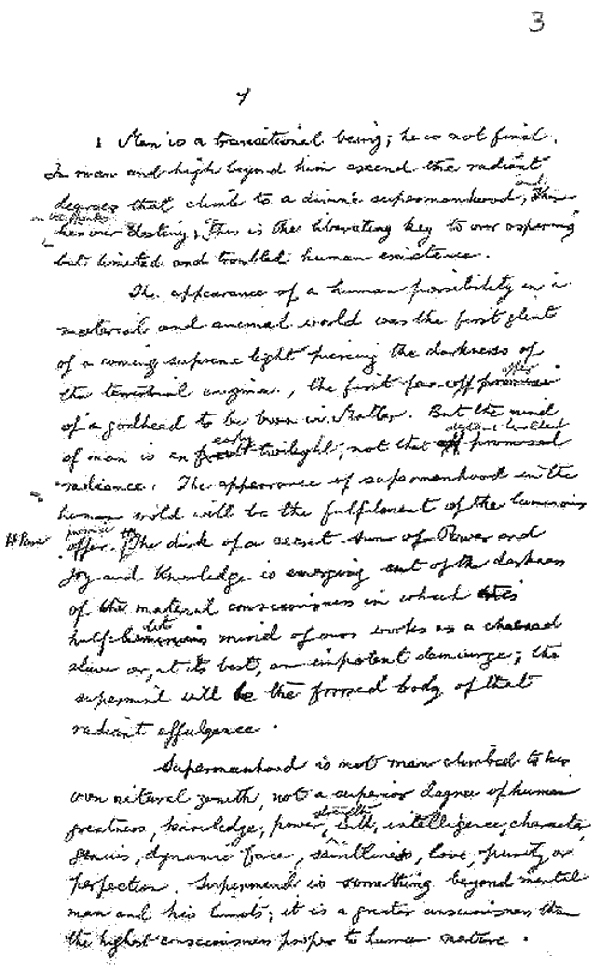 3
1 Man is a transitional being; he is not final.
In man and high beyond him ascend the radiant
degrees that climb to a divine supermanhood,
destiny, This is the liberating key to our aspiring
but limited and troubled human existence.
The appearance of a human possibility in a
material and animal world was the first glint
of a coming supreme light piercing the darkness of
the terrestrial enigma, the first far-off promise
offer
of a godhead to be born in Matter. But the mind
of man is an early twilight, not that promised
radiance. The appearance of supermanhood in the
human world will be the fulfilment of the luminous
promise
offer. The disk of a secret sun of Power and
Joy and Knowledge is emerging out of the darkness
of the material consciousness in which this
half luminous mind of ours works as a chained
slave or, at its best, an impotent demiurge; the
supermind will be the formed body of that
radiant effulgence.
Supermanhood is not man climbed to his
own natural zenith, not a superior degree of human
greatness, knowledge, power, strength, will, intelligence, character,
genius, dynamic force, saintliness, love, purity or
perfection. Supermind is something beyond mental
man and his limits; it is a greater consciousness than
the highest consciousness proper to human nature.